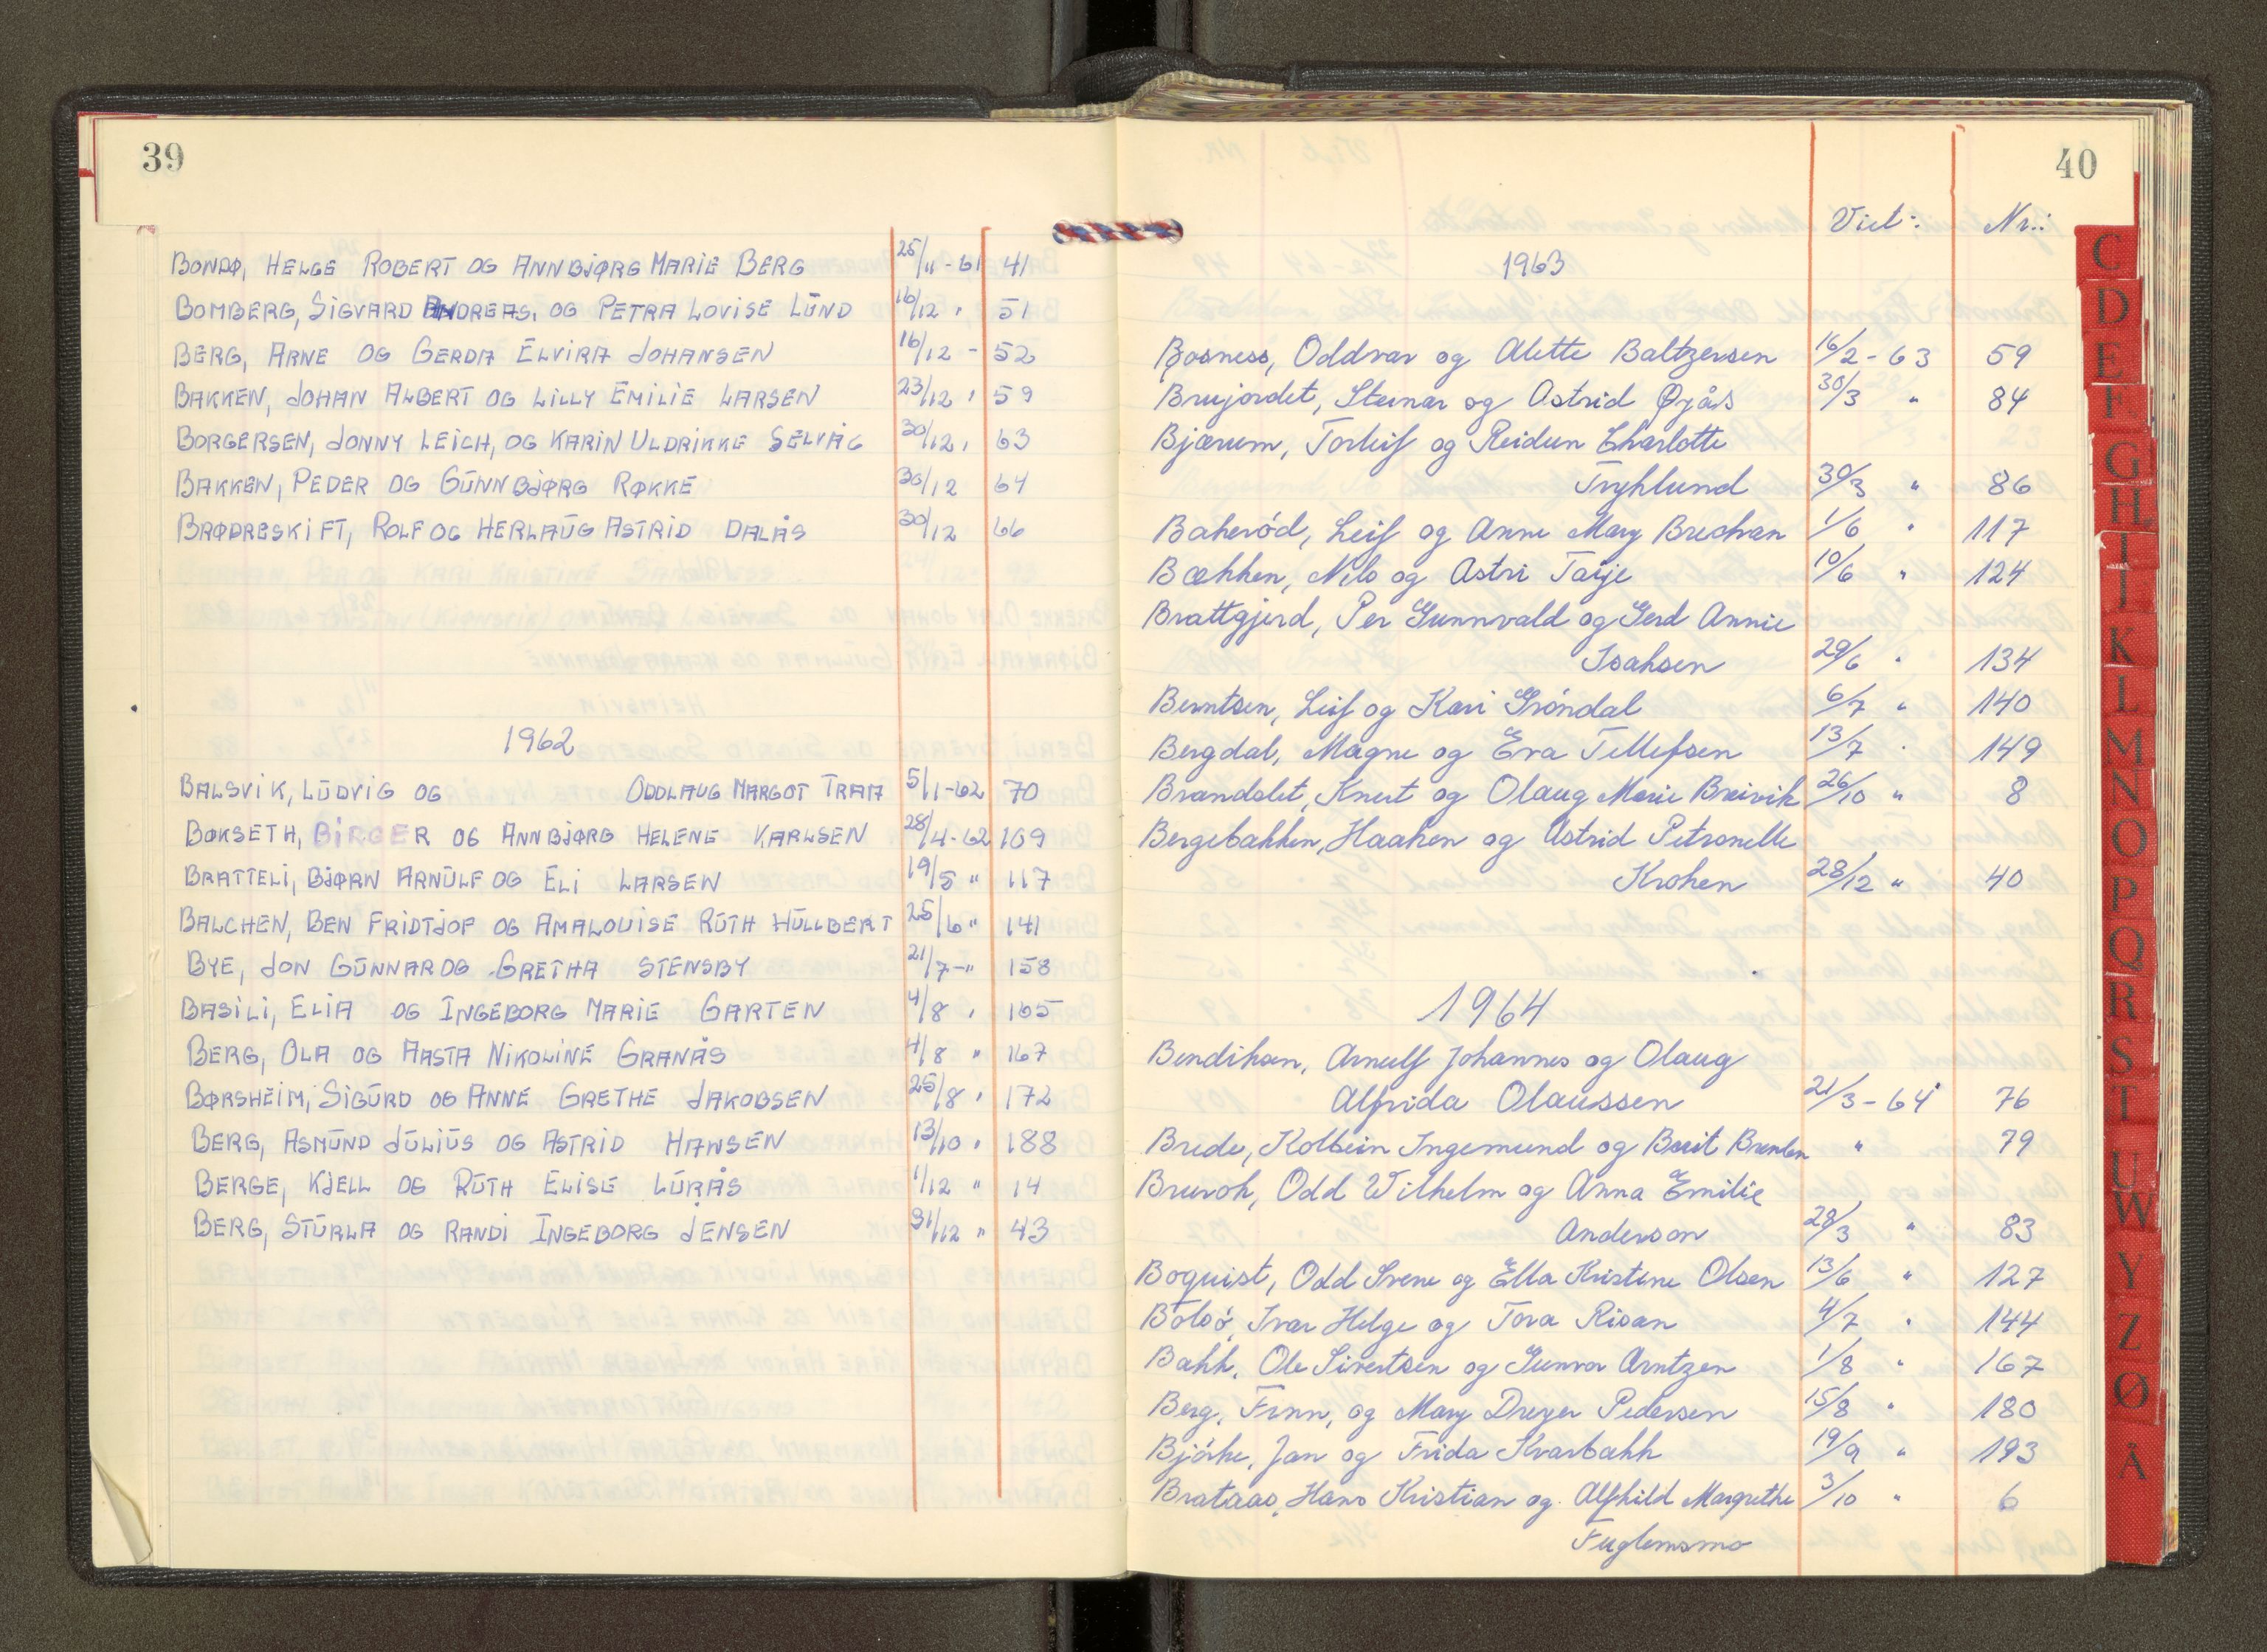 39
BONDØ, HELGE ROBERT OG ANNBJØRG MARIE BERG 25/11-61 41
BOMBERG, SIGVARD ANDREAS, OG PETRA LOVISE LUND 16/12 " 51
BERG, ARNE OG GERDA ELVIRA JOHANSEN 16/12 - 52
BAKKEN, JOHAN ALBERT OG LILLY EMILIE LARSEN 23/12 " 59
BORGERSEN, JONNY LEICH, OG KARIN ULDRIKKE SELVÅG 30/12 " 63
BAKKEN, PEDER OG GUNNBJØRG RØKKE 30/12 64
BRØDRESKIFT, ROLF OG HERLAUG ASTRID DALÅS 30/12 66
1962
BALSVIK, LUDVIG OG ODDLAUG MARGOT TRAA 5/1-62 70
BOKSETH, BIRGER OG ANNBJØRG HELENE KARLSEN 28/4-62 109
BRATTELI, BJØRN ARNULF OG ELI LARSEN 19/5 " 117
BALCHEN, BEN FRIDTJOF OG AMALOUISE RUTH HULLBERT 25/6 " 141
BYE, JON GUNNAR OG GRETHA STENSBY 21/7-" 158
BASILI, ELIA OG INGEBORG MARIE GARTEN 4/8 " 165
BERG, OLA OG AASTA NIKOLINE GRANÅS 4/8 " 167
BØRSHEIM, SIGURD OG ANNE GRETHE JAKOBSEN 25/8 " 172
BERG, ASMUND JULIUS OG ASTRID HANSEN 13/10 " 188
BERGE, KJELL OG RUTH ELISE LURÅS 1/12 " 14
BERG, STURLA OG RANDI INGEBORG JENSEN 31/12 " 43
40
Viet: Nr.:
1963
Bosness, Oddvar og Alette Baltzersen 16/2-63 59
Brujordet, Steinar og Astrid Øyås 30/3 " 84
Bjærum, Torleif og Reidun Charlotte
Tryhlund 30/3 " 86
Bakerød, Leif og Anne Mary Brechan 1/6 " 117
Bækken, Nils og Astri Tarje 10/6 " 124
Brattgjerd, Per Gunnvald og Gerd Annie
Isaksen 29/6 " 134
Berntsen, Leif og Kari Grøndal 6/7 " 140
Bergdal, Magne og Eva Tellefsen 13/7 " 149
Brandslet, Knut og Olaug Marie Breivik 26/10 " 8
Bergebakken, Haaken og Astrid Petronelle
Kroken 28/12 " 40
1964
Bendiksen, Arnulf Johannes og Olaug
Alfrida Olaussen 21/3-64 76
Brede, Kolbein Ingemund og Berit " 79
Odd Wilhelm og Anna Emilie
Anderson 28/3 " 83
Boquist, Odd Svene og Ella Kristine Olsen 13/6 " 127
Bolsø, Ivar Helge og Tora Risan 4/7 " 144
Bakk, Ole Sivertsen og Gunvor Arntzen 1/8 " 167
Berg, Finn, og Mary Dreyer Pedersen 15/8 " 180
Bjørke, Jan og Frida Kvarbakk 19/9 " 193
Brataas, Hans Kristian og Alfhild Margrethe 3/10 " 6
Fuglemsmo
C
D
E
F
G
H
I
J
K
L
M
N
O
P
Q
R
S
T
U
W
Y
Z
Ø
Å